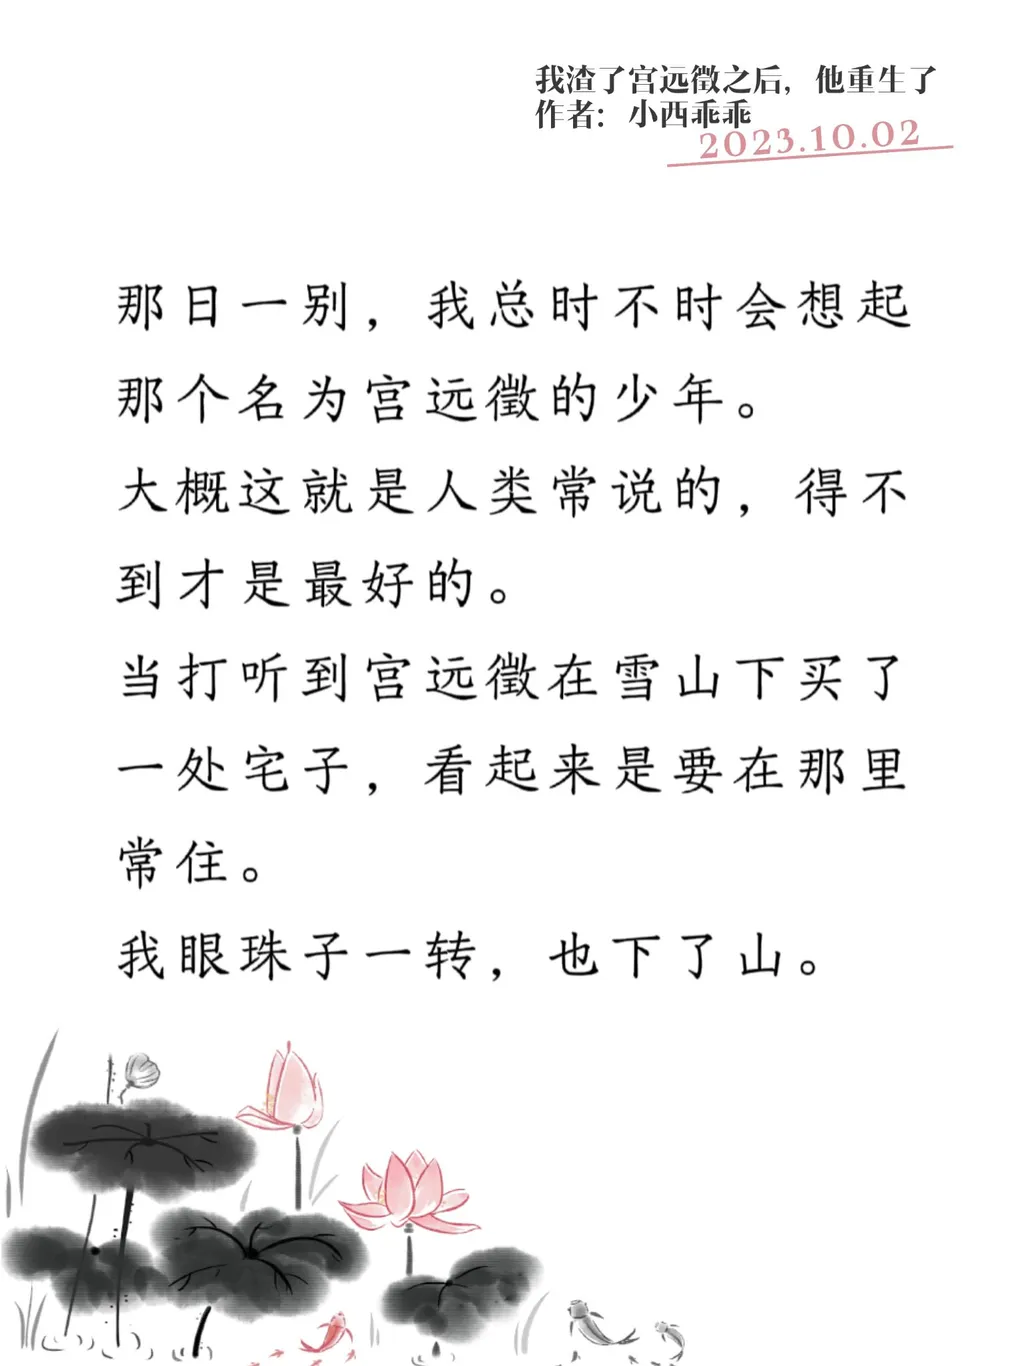 我渣了宫远徵之后，他重生了
作者：小西乖乖
2023.10.02
那日一别，我总时不时会想起
那个名为宫远徵的少年。
大概这就是人类常说的，得不
到才是最好的。
当打听到宫远徵在雪山下买了
一处宅子，看起来是要在那里
常住。
我眼珠子一转，也下了山。